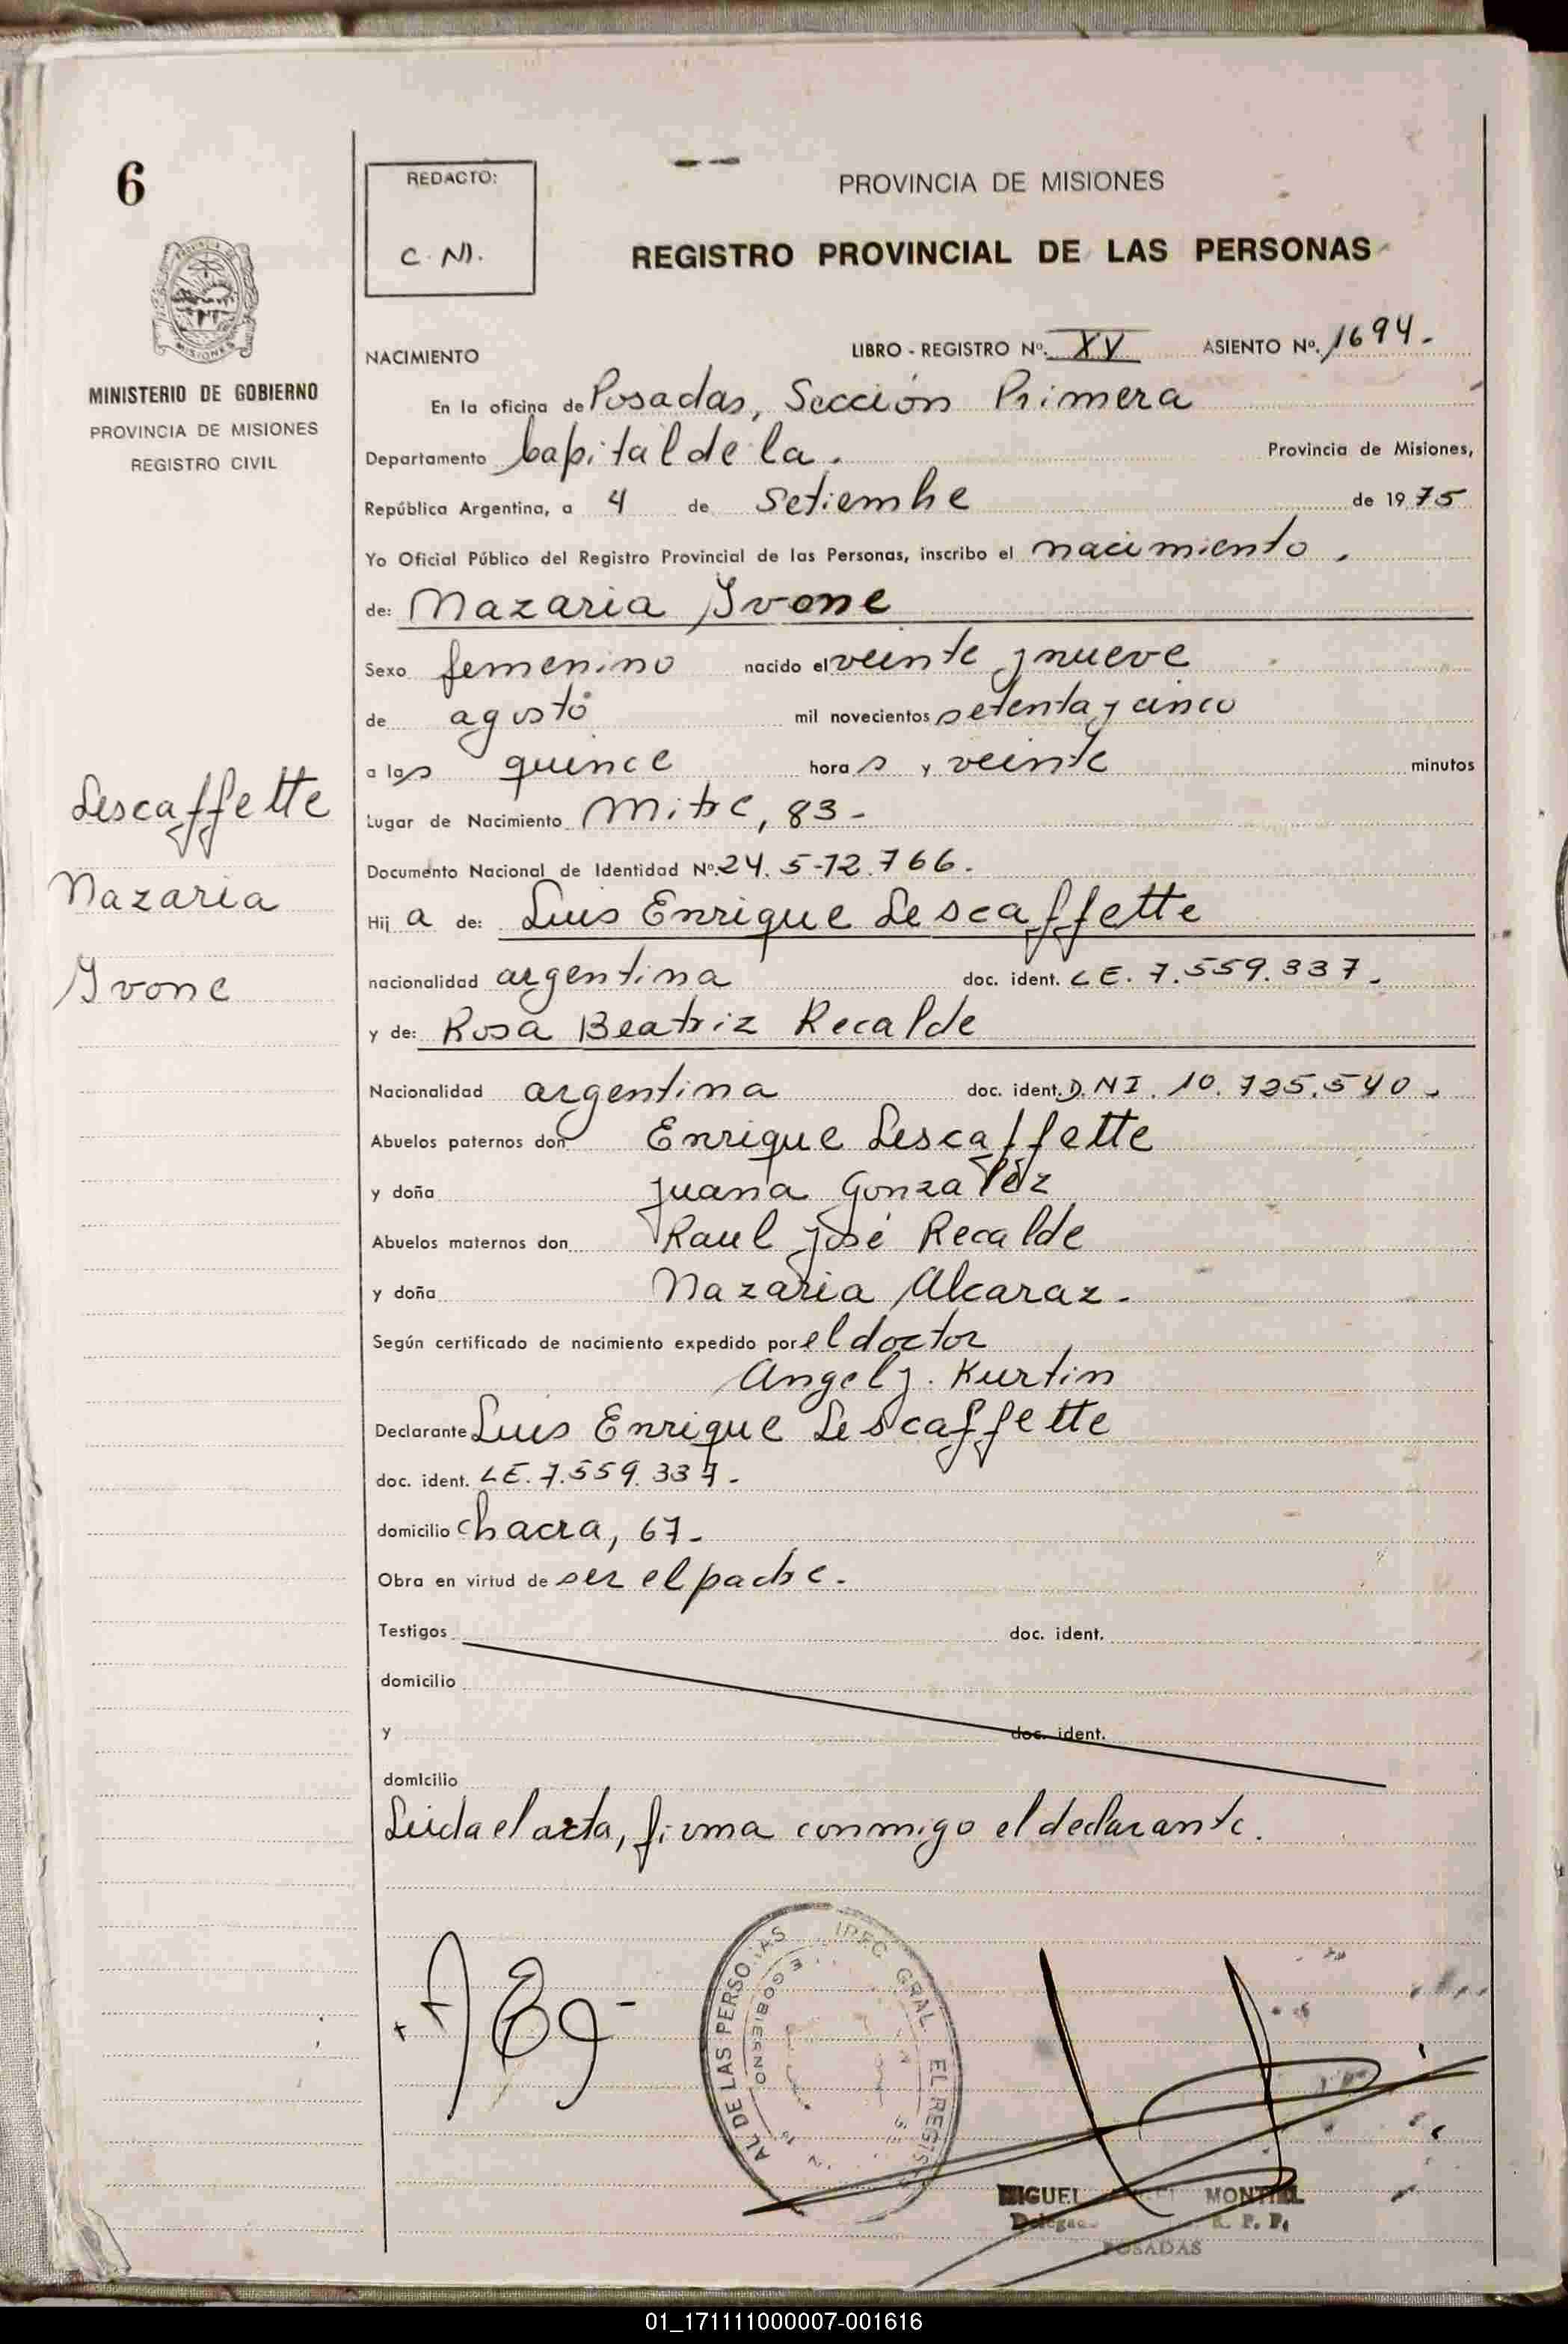 6
REDACTO:
C. N.
PROVINCIA DE MISIONES
REGISTRO PROVINCIAL DE LAS PERSONAS
MISIONES
MINISTERIO DE GOBIERNO
PROVINCIA DE MISIONES
REGISTRO CIVIL
NACIMIENTO LIBRO - REGISTRO Nº. XV ASIENTO Nº. 1694.-
En la oficina de Posadas, Sección Primera
Departamento Capital de la. Provincia de Misiones,
República Argentina, a 4 de Setiembre de 1975
Yo Oficial Público del Registro Provincial de las Personas, inscribo el nacimiento.
de: Nazaria Ivone
Sexo femenino nacido el veinte y nueve
de agosto mil novecientos setenta y cinco
a las quince horas y veinte minutos
Lugar de Nacimiento Mitre, 83-
Documento Nacional de Identidad Nº. 24.572.766.
Lescaffette
Nazaria
Ivone
Hija de: Luis Enrique Lescaffette
nacionalidad argentina doc. ident. LE. 7.559.337.-
y de: Rosa Beatriz Recalde
Nacionalidad argentina doc. ident. D.NI. 10.725.540.-
Abuelos paternos don Enrique Lescaffette
y doña Juana Gonzalez
Abuelos maternos don Raul José Recalde
y doña Nazaria Alcaraz.-
Según certificado de nacimiento expedido por el doctor
Angel J. Kurtin
Declarante Luis Enrique Lescaffette
doc. ident. LE. 7.559.337.-
domicilio chacra, 67.-
Obra en virtud de ser el padre.-
Testigos doc. ident.
domicilio
y doc. ident.
domicilio
Leida el acta, firma conmigo el declarante.
AL DE LAS PERSONAS
GRAL. EL REGIS
GOBIERNO
MIGUEL MONTIEL
R. P. P.
POSADAS
01_171111000007-001616